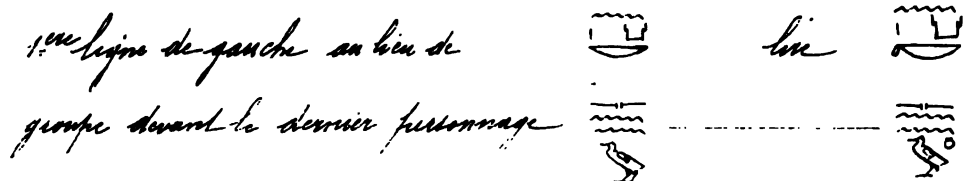 1ère ligne de gauche au lieu de lire
groupe devant le dernier personnage